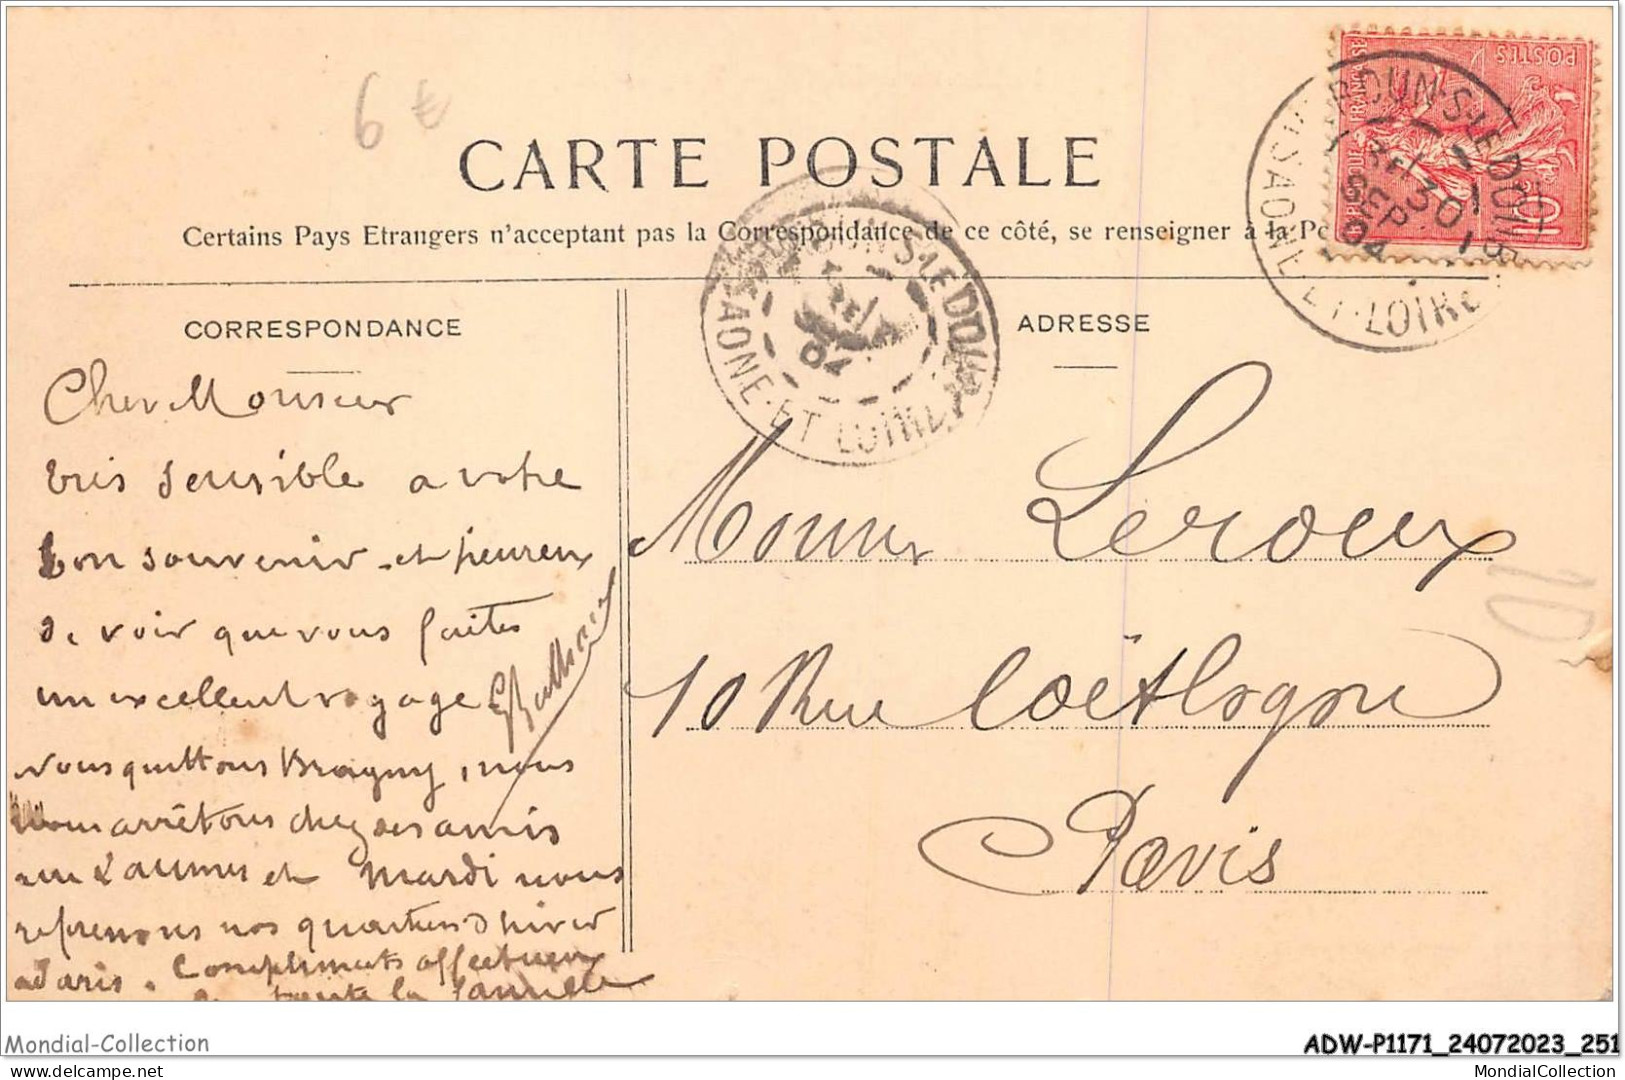 6 €
CARTE POSTALE
Certains Pays Etrangers n'acceptant pas la Correspondance de ce côté, se renseigner à la Po
POSTES
10
VERDUN-S-LE DOUBS
30 SEP 04
SAONE-ET-LOIRE
VERDUN-S-LE DOUBS
04
SAONE-ET-LOIRE
CORRESPONDANCE
ADRESSE
Cher Monsieur
très sensible a votre
bon souvenir et heureux
de voir que vous faites
un excellent voyage
nous quittons Bragny, nous
nous arrêtons chez des amis
et Mardi nous
reprenons nos quartiers d'hiver
a Paris. Compliments affectueux
de toute la famille
Monsieur Leroux
10 Rue Coëtlogon
Paris
10
Mondial-Collection
ADW-P1171_24072023_251
delcampe.net
MondialCollection